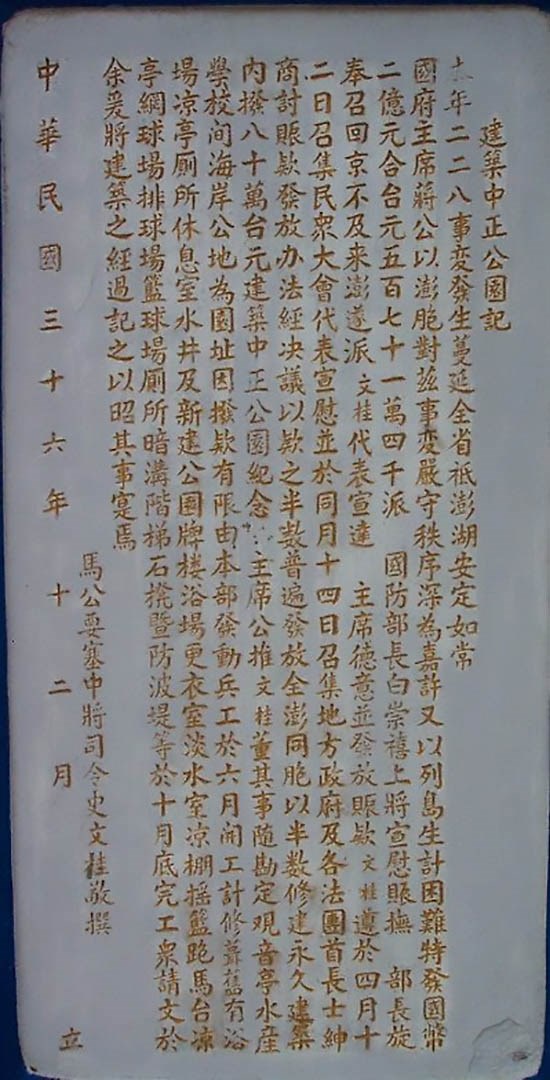 建築中正公園記
本年二二八事変發生蔓延全省祇澎湖安定如常
國府主席蔣公以澎胞對茲事変嚴守秩序深為嘉許又以列島生計困難特發國幣
二億元合台元五百七十一萬四千派 國防部長白崇禧上將宣慰賑撫 部長旋
奉召回京不及来澎遂派文桂代表宣達 主席德意並發放賑欵文桂遵於四月十
二日召集民衆大會代表宣慰並於同月十四日召集地方政府及各法團首長士紳
商討賑欵發放办法經决議以欵之半数普遍發放全澎同胞以半数修建永久建築
内撥八十萬台元建築中正公園紀念 主席公推文桂董其事随勘定观音亭水産
學校间海岸公地為園址因撥欵有限由本部發動兵工於六月開工計修葺舊有浴
場凉亭厠所休息室水井及新建公園牌楼浴場更衣室淡水室凉棚摇籃跑馬台凉
亭網球場排球場籃球場厠所暗溝階梯石櫈暨防波堤等於十月底完工衆請文於
余爰將建築之經過記之以昭其事寔焉
馬公要塞中將司令史文桂敬撰
中華民國三十六年十二月 立